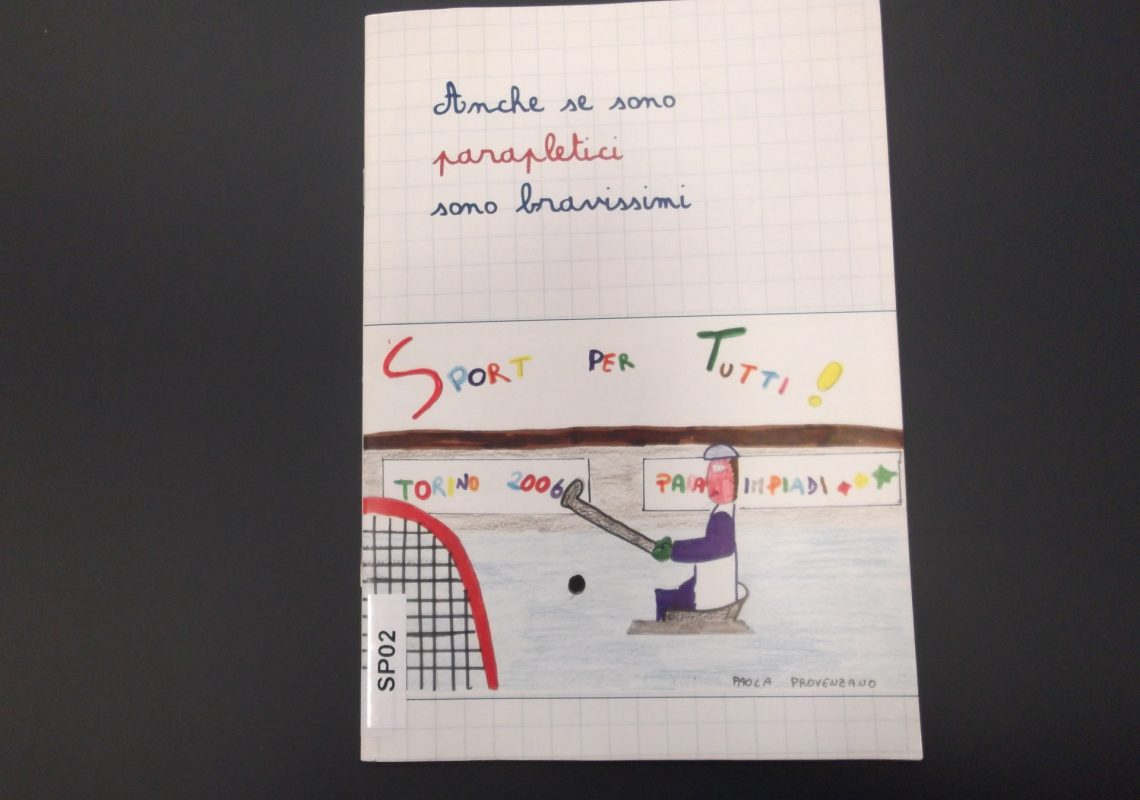 Anche se sono
parapletici
sono bravissimi
SPORT PER TUTTI!
TORINO 2006
PARALIMPIADI
SP02
PAOLA PROVENZANO